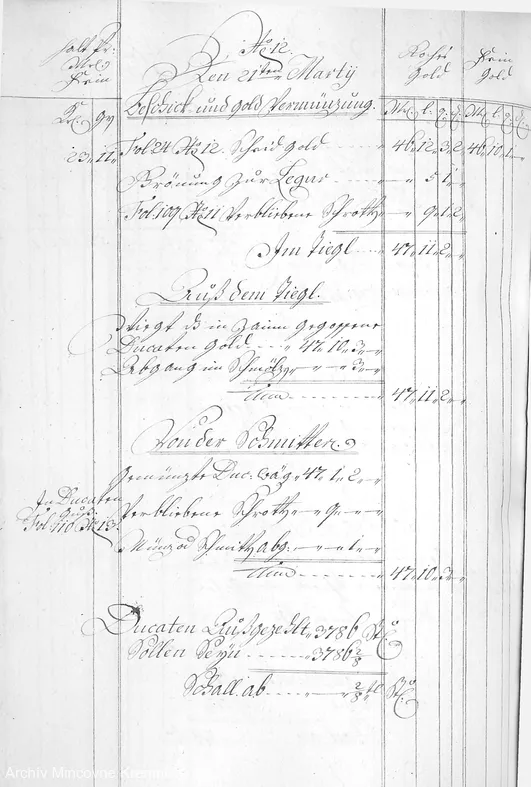 halt pr:
Mrk
Fein
No: 12.
Den 21ten Marty
Rohes
Gold
Fein
Gold
Beschick und gold Vermünzung.
23 11 Fol 24 No 12. Scheid gold 46 12 3 2 46 10 1
zur Legur 5 1
Fol: 109 No 11 Verbliebene Schrott 9 1 2
Im Tiegl 47 11 2
Auß dem Tiegl.
Wiegt in Zainn gegossene
Ducaten gold 47 10 3
Abgang im Schmölz 3
47 11 2
Von der Schmitten
Gemünzte Duc: wäg 47 1 2
In Ducaten
Guß
Fol: 110 No 13
Verbliebene Schrott 9
Münz od Schmitt abg: 1
47 10 3
Ducaten Außgezehlt 3786 Stk
Sollen Seyn 3786 2/8
Schall ab 2/8 tl Stk
Archiv Mincovne Kremnica